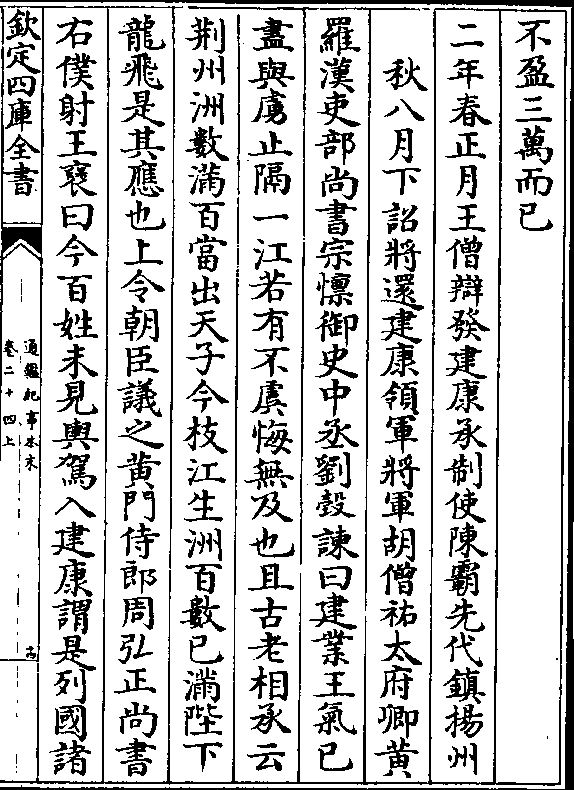 不盈三萬而已
二年春正月王僧辯發建康承制使陳霸先代鎮揚州
秋八月下詔將還建康領軍將軍胡僧祐太府卿黄
羅漢吏部尚書宗懍御史中丞劉瑴諫曰建業王氣已
盡與虜止隔一江若有不虞悔無及也且古老相承云
荆州洲數滿百當出天子今枝江生洲百數已滿陛下
龍飛是其應也上令朝臣議之黄門侍郎周弘正尚書
右僕射王裒曰今百姓未見輿駕入建康謂是列國諸
欽定四庫全書
通鑑紀事本末
卷二十四上